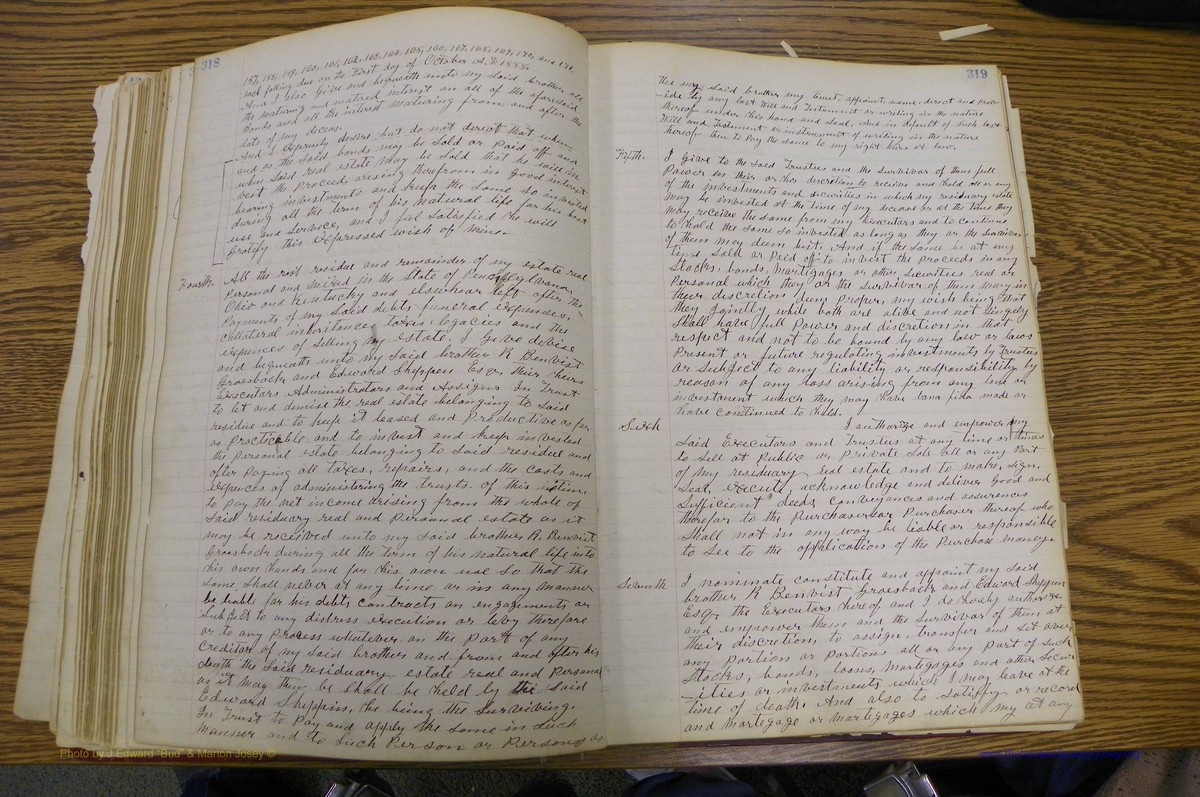 318
157, 158, 159, 160, 161, 162, 163, 164, 165, 166, 167, 168, 169, 170, and 171,
each falling due on the First day of October A.D 1888.
And I also Give and bequeath unto my said brother all
the Maturing and matured interest on all of the aforesaid
Bonds and all the interest maturing from and after the
date of my deceas.
And I Expressly desire but do not direct that when
and as the said bonds may be Sold or Paid off and
when said real estate may be Sold that he said in
vest the Proceeds arising therefrom in Good interest
bearing investments and keep the same so invested
during all the term of his natural life for his own
use and Service, and I feel Satisfied he will
Gratify this Expressed wish of mine.
Fourth. All the rest residue and remainder of my estate real
Personal and mixed in the State of Pennsylvania,
Ohio and Kentucky and elsewhear left after the
Payments of my Said debts funeral expenses,
collateral inheritance taxes legacies and the
expences of selling my estate, I Give devise
and bequeath unto my Said brother R Benvist
Groesbock and Edward Shippen Esqr their heirs
Executors Administrators and Assigns In Trust
to let and demise the real estate belonging to Said
residue and to keep it leased and Productive as far
as Practicable and to invest and keep invested
the Personal estate belonging to Said residue and
after Paying all taxes, repairs, and the costs and
expences of administering the trusts of this
to pay the net income arising from the whole of
Said residuary real and Personal estate as it
may be received unto my Said brother R. Benvist
Groesbock during all the term of his natural life into
his own hands and for his own use So that the
Same Shall never at any time or in any manner
be liable for his debts contracts or engagements or
Subject to any distress execution or levy therefore
or to any Process whatever on the part of any
Creditor of my Said brother and from and after his
death the Said residuary estate real and Personal
as it may then be Shall be held by the Said
Edward Shippin, he being the Surviving.
In Trust to Pay and apply the Same in Such
manner and to Such Person or Persons as
319
the my said brother my limit, appoint, name, direct and prov
-ide by any last Will and Testament or writing in the nature
thereof under his hand and Seal, and in default of such last
Will and Testament or instrument of writing in the nature
thereof then to Pay the same to my right heirs at law.
Fifth. I Give to the Said Trustees and the Survivor of them full
Power in their or his discretion to receive and hold all or any
of the investments and securities in which my residuary estate
may be invested at the time of my decease or at the time they
may receive the same from my executors and to continue
to hold the same so invested as long as they or the Survivor
of them may deem best. And if the same be at any
time Sold or Paid off to invest the Proceeds in any
Stocks, bonds, Mortgages or other Securities real or
Personal which they or the Survivor of them may in
their discretion deem Proper, my wish being that
they Jointly while both are alike and not Singely
Shall have full Power and discretion in that
respect and not to be bound by any law or laws
Present or future regulating investments by Trustees
or Subject to any liability or responsibility by
reason of any loss arising from any loan or
investment which they may have bona fida made or
have continued to hold.
Sixth I authorize and empower my
Said Executors and Trustees at any time or times
to Sell at Public or Private Sale all or any Part
of my residuary real estate and to make, Sign,
Seal, execute, acknowledge and deliver Good and
Sufficient deeds conveyances and assurances
therefor to the Purchasers or Purchaser thereof who
Shall not in any way be liable or responsible
to See to the application of the Purchase money.
Seventh I nominate constitute and appoint my Said
brother R Benvist Groesbock and Edward Shippen
Esqr the Executors hereof and I do hereby authorize
and empower them and the Survivor of them at
their discretion to assign, transfer and Set over
any Portion or Portions all or any part of Such
Stocks, bonds, loans, Mortgages and other Secur
-ities or investments which I may leave at the
time of death. And also to Satisfy or record
and Mortgage or Mortgages which my at any
Photo by J Edward "Bud" & Marion Josey ©